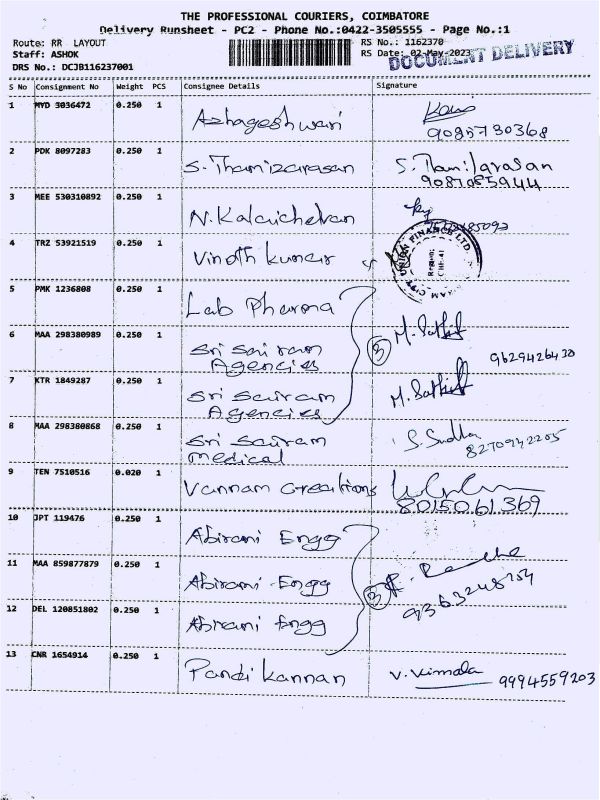 THE PROFESSIONAL COURIERS, COIMBATORE
Delivery Runsheet - PC2 - Phone No.:0422-3505555 - Page No.:1
Route: RR LAYOUT
Staff: ASHOK
DRS No.: DCJB116237001
RS No.: 1162370
RS Date: 02-May-2023
DOCUMENT DELIVERY
S No Consignment No Weight PCS Consignee Details Signature
1 MYD 3036472 0.250 1 Azhageshwari
9085730368
2 PDK 8097283 0.250 1 S. Thamizarasan S. Thamilarasan
9087085944
3 MEE 530310892 0.250 1 N. Kalaichelvan
4 TRZ 53921519 0.250 1 Vinoth kumar
UNION FINANCE LTD
5 PMK 1236808 0.250 1 Lab Pharma
6 MAA 298380989 0.250 1 Sri Sairam
Agencies
3 M. Sathish
9629426430
7 KTR 1849287 0.250 1 Sri Sairam
Agencies
M. Sathish
8 MAA 298380868 0.250 1 Sri Sairam
medical
S. Sudha
8270942205
9 TEN 7510516 0.020 1 Vannam Creations
8015061369
10 JPT 119476 0.250 1 Abirami Engg
11 MAA 859877879 0.250 1 Abirami Engg
3
9363248254
12 DEL 120851802 0.250 1 Abirami Engg
13 CNR 1654914 0.250 1 Pandi Kannan V. Vimala 9994559203